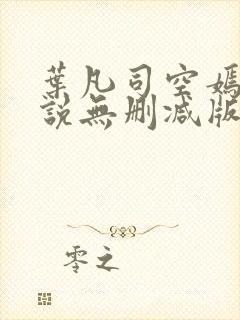 葉凡司空嫣
說無刪減版
零之